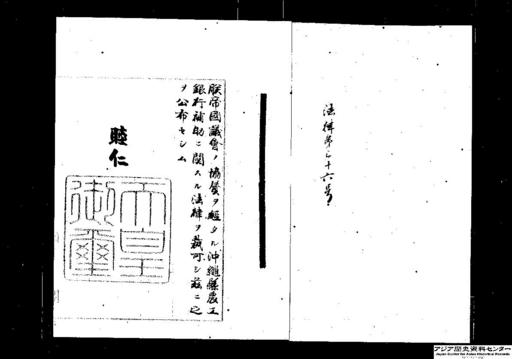 法律第三十六号
朕帝國議會ノ協賛ヲ経タル沖縄縣農工
銀行補助ニ関スル法律ヲ裁可シ茲ニ之
ヲ公布セシム
睦仁
天皇
御璽
アジア歴史資料センター
Japan Center for Asian Historical Records